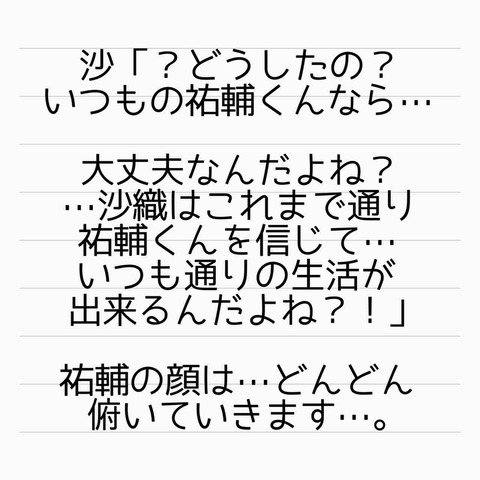 沙「？どうしたの？
いつもの祐輔くんなら…
大丈夫なんだよね？
…沙織はこれまで通り
祐輔くんを信じて…
いつも通りの生活が
出来るんだよね？！」
祐輔の顔は…どんどん
俯いていきます…。